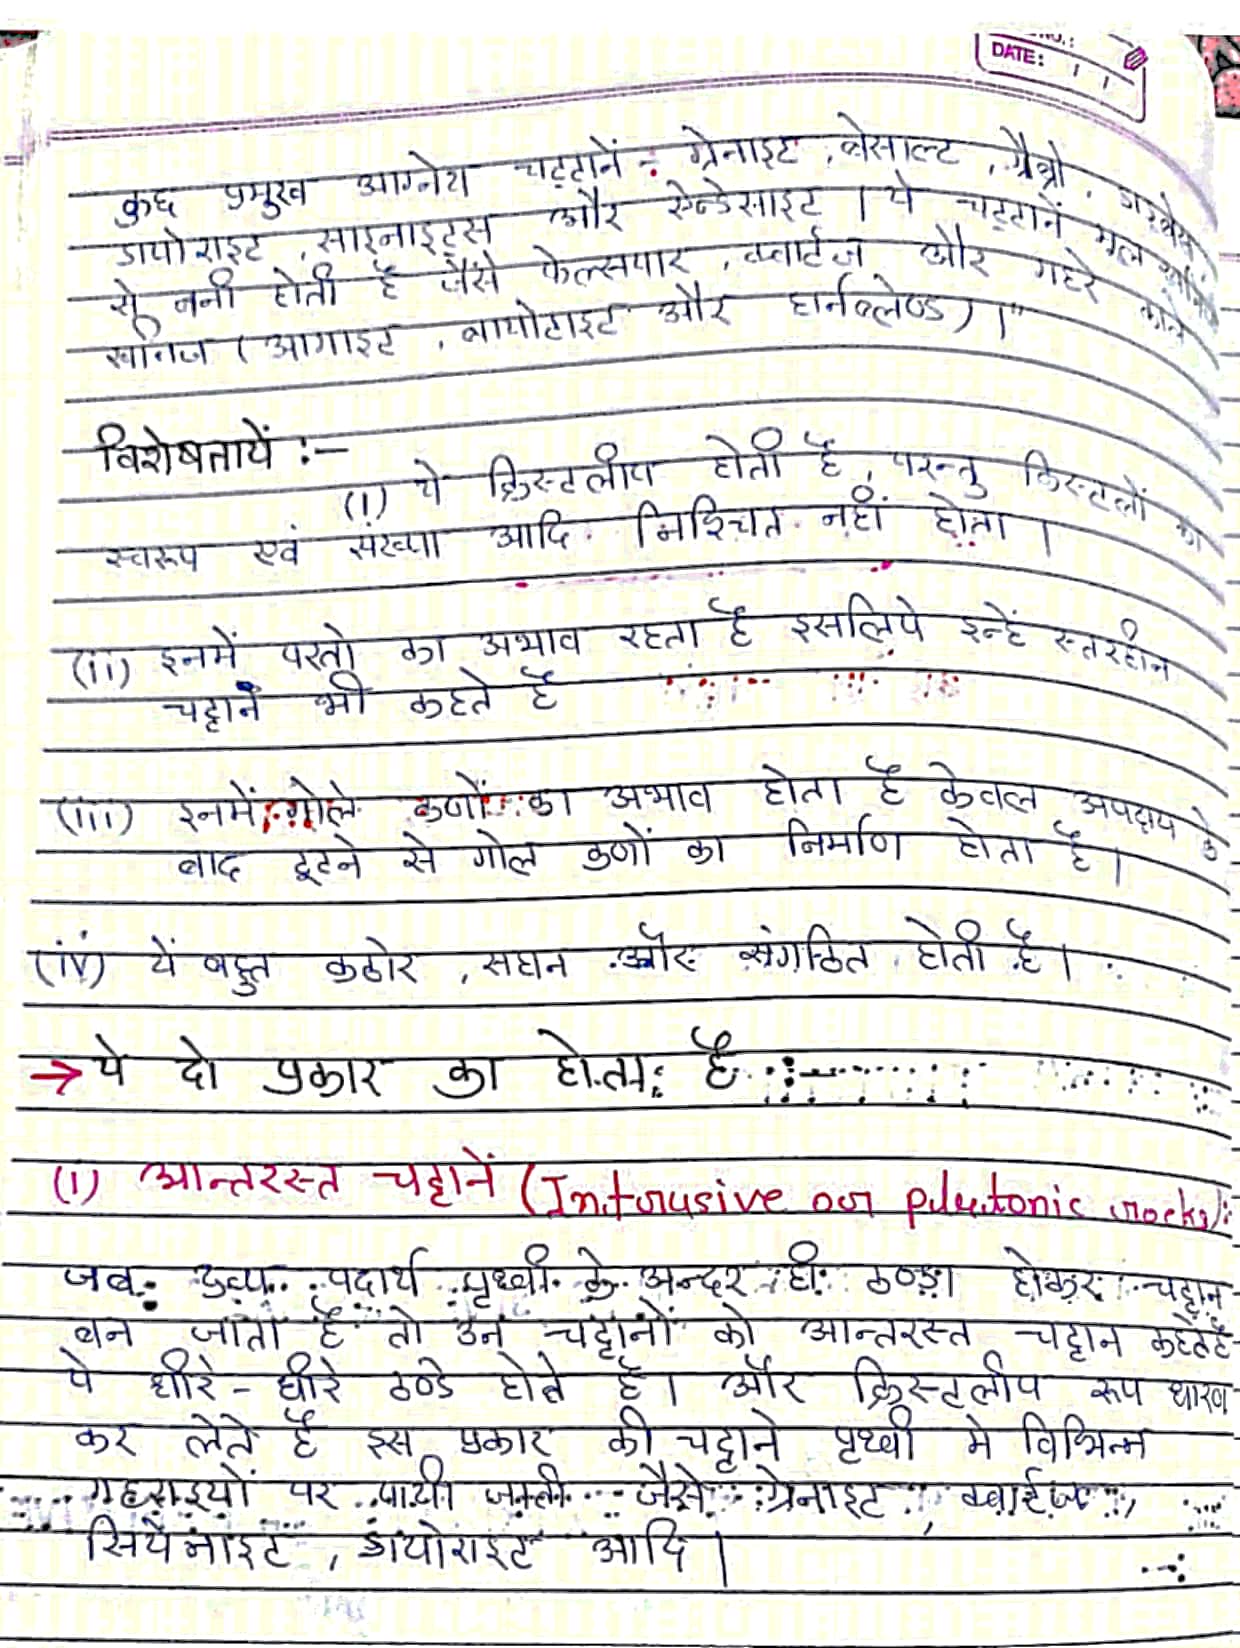 DATE: / /
कुछ प्रमुख आग्नेय चट्टानें :- ग्रेनाइट, बेसाल्ट, ग्रैब्रो,
डायोराइट, साइनाइट्स और ऐन्डेसाइट। ये चट्टानें मूल
से बनी होती है जैसे फेल्सपार, क्वार्टज और गहरे
खनिज (आगाइट, बायोटाइट और हार्नब्लेण्ड)।
विशेषतायें :-
(i) ये क्रिस्टलीय होती है, परन्तु क्रिस्टलों का
स्वरूप एवं संख्या आदि निश्चित नहीं होता।
(ii) इनमें परतो का अभाव रहता है इसलिये इन्हें स्तरहीन
चट्टाने भी कहते है
(iii) इनमें गोले कणों का अभाव होता है केवल अपक्षय के
बाद टूटने से गोल कणों का निर्माण होता है।
(iv) यें बहुत कठोर, सघन और संगठित होती है।
→ ये दो प्रकार का होता है :-
(i) आन्तरस्त चट्टानें (Intrusive or plutonic rocks):
जब द्रव्य पदार्थ पृथ्वी के अन्दर ही ठण्डा होकर चट्टान
बन जाता है तो उन चट्टानों को आन्तरस्त चट्टान कहते है
ये धीरे-धीरे ठण्डे होते है। और क्रिस्टलीय रूप धारण
कर लेते है इस प्रकार की चट्टाने पृथ्वी मे विभिन्न
गहराइयों पर पायी जाती जैसे ग्रेनाइट, क्वार्टज,
सियेनाइट, डायोराइट आदि।